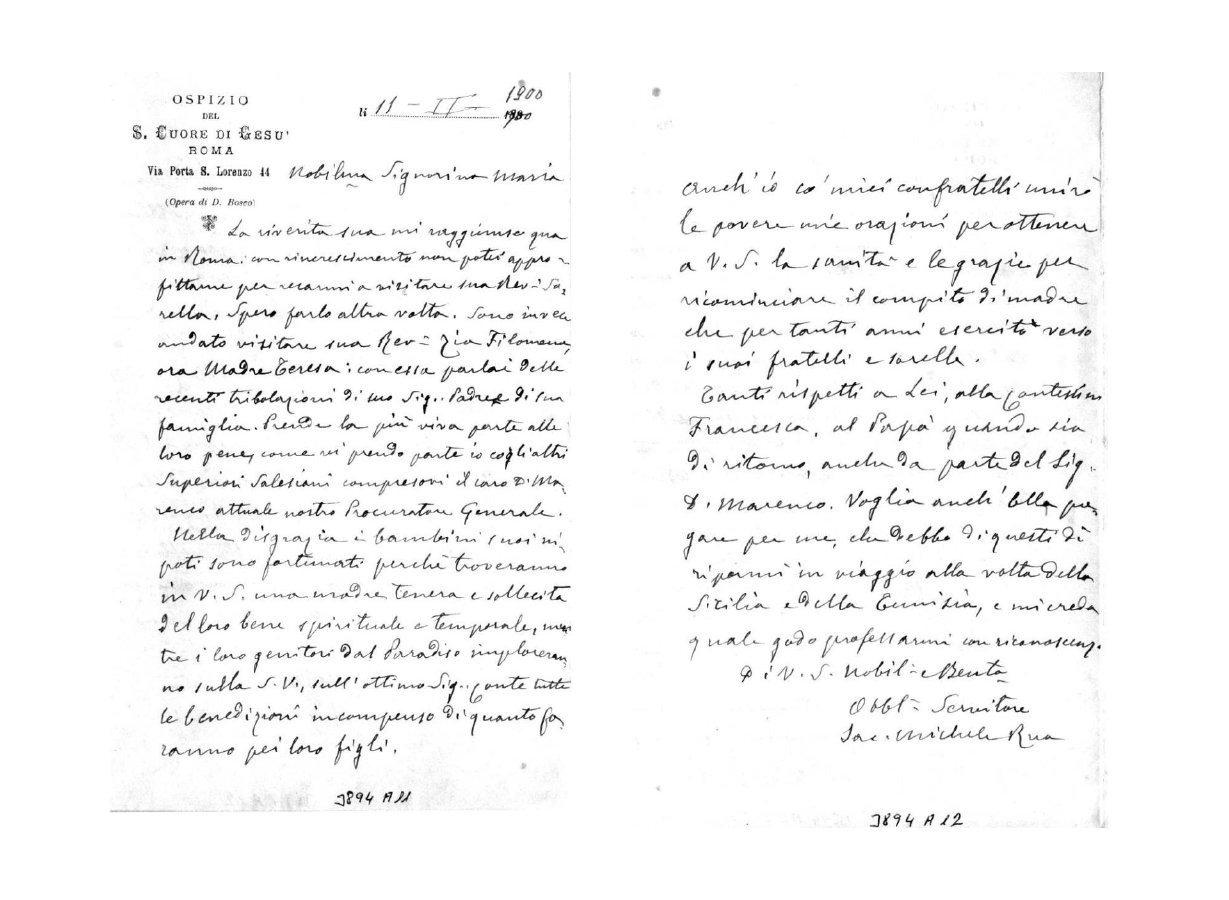 OSPIZIO
DEL
S. CUORE DI GESU'
ROMA
Via Porta S. Lorenzo 44
(Opera di D. Bosco)
li 11 – II – 1900
Nobilma Signorina Maria
La riverita sua mi raggiunse qua
in Roma: con rincrescimento non potei appro-
fittarne per recarmi a visitare sua Rev- So-
rella. Spero farlo altra volta. Sono invece
andato visitare sua Rev- Zia Filomena,
ora Madre Teresa: con essa parlai delle
recenti tribolazioni di suo Sig. Padre di sua
famiglia. Prende la più viva parte alle
loro pene, come vi prendo parte io cogli altri
Superiori Salesiani compresovi il caro D. Ma-
renco attuale nostro Procuratore Generale.
Nella disgrazia i bambini suoi ni-
poti sono fortunati perchè troveranno
in V. S. una madre tenera e sollecita
del loro bene spirituale e temporale, men
tre i loro genitori dal Paradiso imploreran
no sulla S. V., sull'ottimo Sig. Conte tutte
le benedizioni in compenso di quanto fa-
ranno pei loro figli.
J894 A11
anch'io co' miei confratelli unirò
le povere mie orazioni per ottenere
a V. S. la sanità e le grazie per
ricominciare il compito di madre
che per tanti anni esercitò verso
i suoi fratelli e sorelle.
Tanti rispetti a Lei, alla Contessina
Francesca, al Papà quando sia
di ritorno, anche da parte del Sig.
D. Marenco. Voglia anch'Ella pre-
gare per me, che debbo di questi dì
ripormi in viaggio alla volta della
Sicilia e della Tunisia, e mi creda
quale godo professarmi con riconoscenz.
Di V. S. Nobil- e Benta
Obbl- Servitore
Sac. Michele Rua
J894 A12